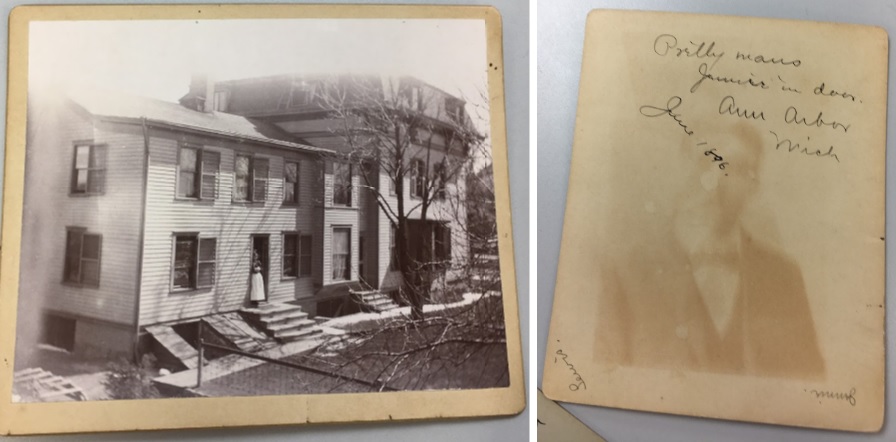 Prettymans
Jennie in door.
Ann Arbor
Mich
June 1896.
Jennie